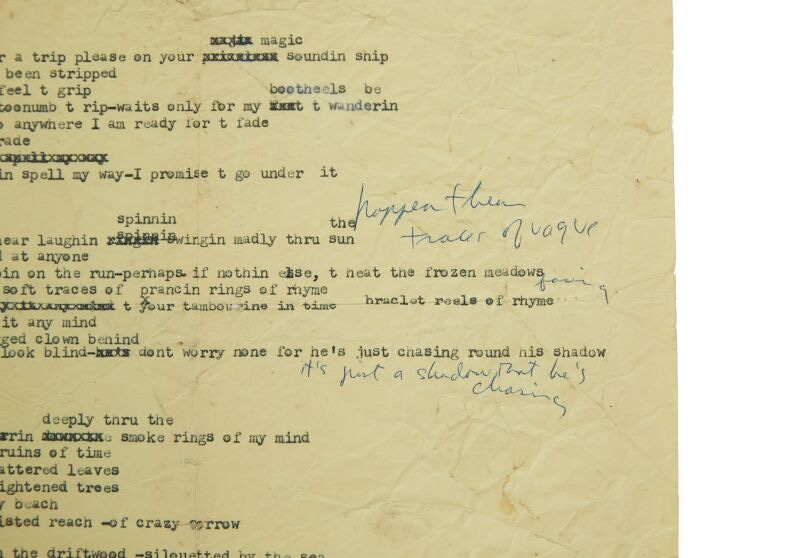 magic
r a trip please on your soundin ship
been stripped
feel t grip bootheels be
toonumb t rip-waits only for my t wanderin
o anywhere I am ready for t fade
rade
in spell my way-I promise t go under it
happen t hear
spinnin the
spinnin
traces of vague
hear laughin swingin madly thru sun
d at anyone
pin on the run-perhaps. if nothin else, t heat the frozen meadows
soft traces of prancin rings of rhyme
t your tambourine in time braclet reels of rhyme
it any mind
gged clown behind
look blind- dont worry none for he's just chasing round his shadow
it's just a shadow that he's
chasing
deeply thru the
rrin smoke rings of my mind
ruins of time
attered leaves
ightened trees
y beach
isted reach -of crazy sorrow
n the driftwood -silouetted by the sea